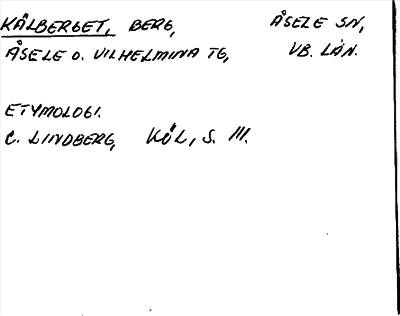 KÅLBERGET, BERG, ÅSELE SN,
ÅSELE O. VILHELMINA TG, VB. LÄN.
ETYMOLOGI.
C. LINDBERG, KÖL, S. 111.